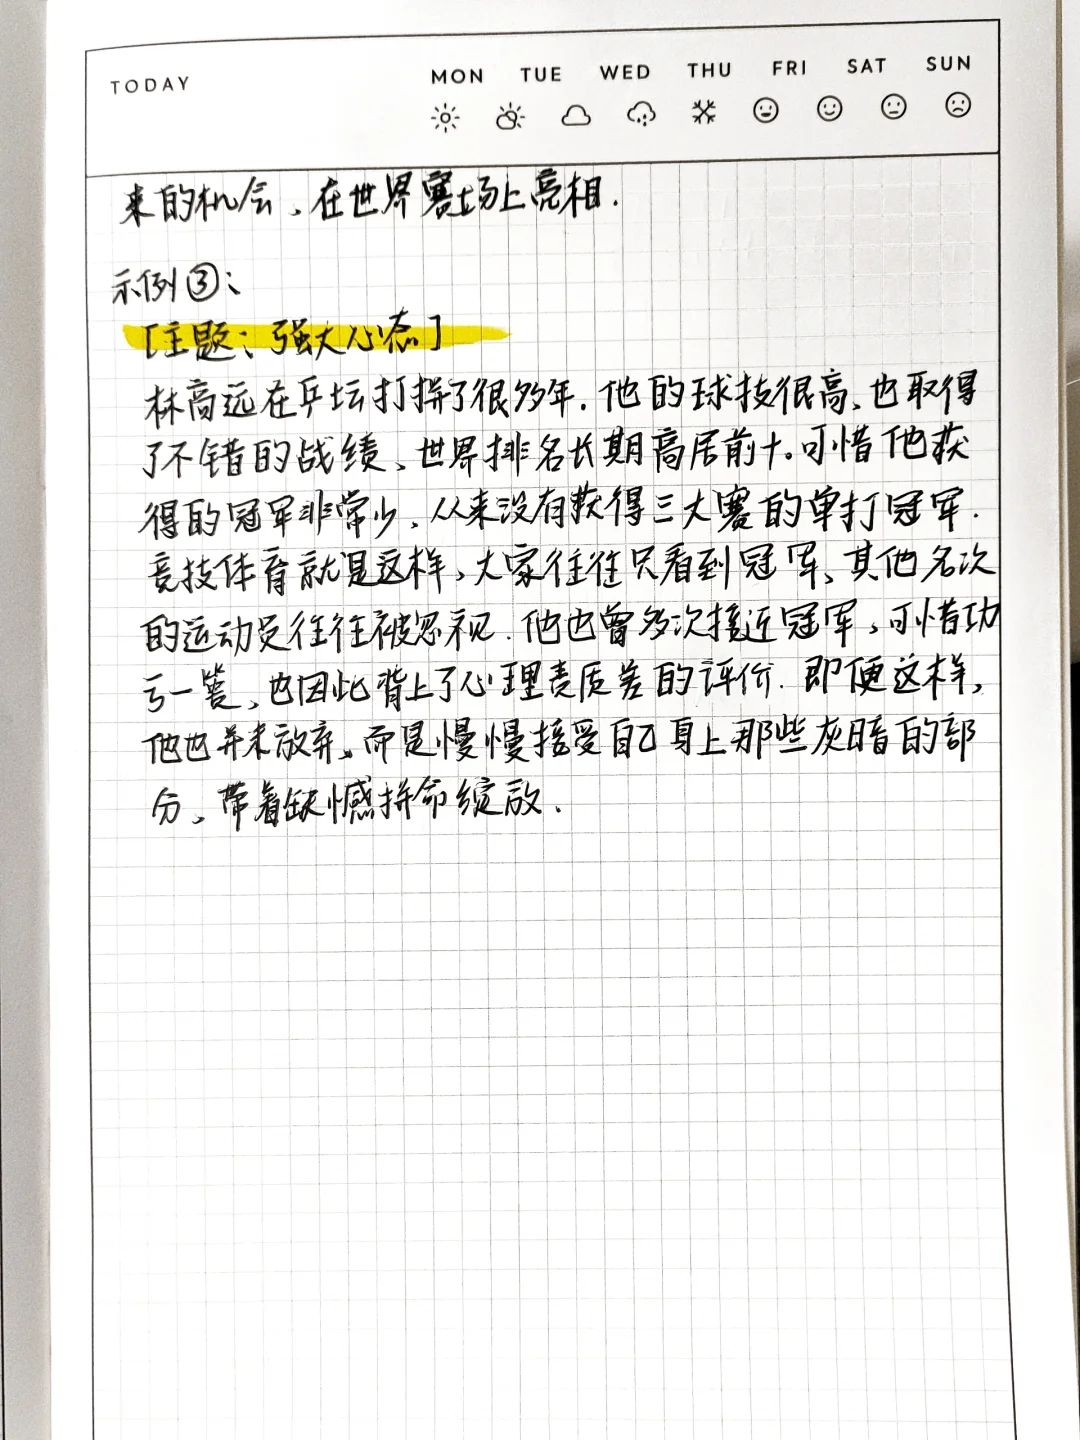 TODAY
MON TUE WED THU FRI SAT SUN
来的机会、在世界赛场上亮相.
示例③:
[主题:强大心态]
林高远在乒坛打拼了很多年.他的球技很高、也取得
了不错的战绩、世界排名长期高居前十。可惜他获
得的冠军非常少,从来没有获得三大赛的单打冠军.
竞技体育就是这样,大家往往只看到冠军、其他名次
的运动员往往被忽视.他也曾多次接近冠军,可惜功
亏一篑,也因此背上了心理素质差的评价.即便这样,
他也并未放弃,而是慢慢接受自己身上那些灰暗的部
分、带着缺憾拼命绽放.